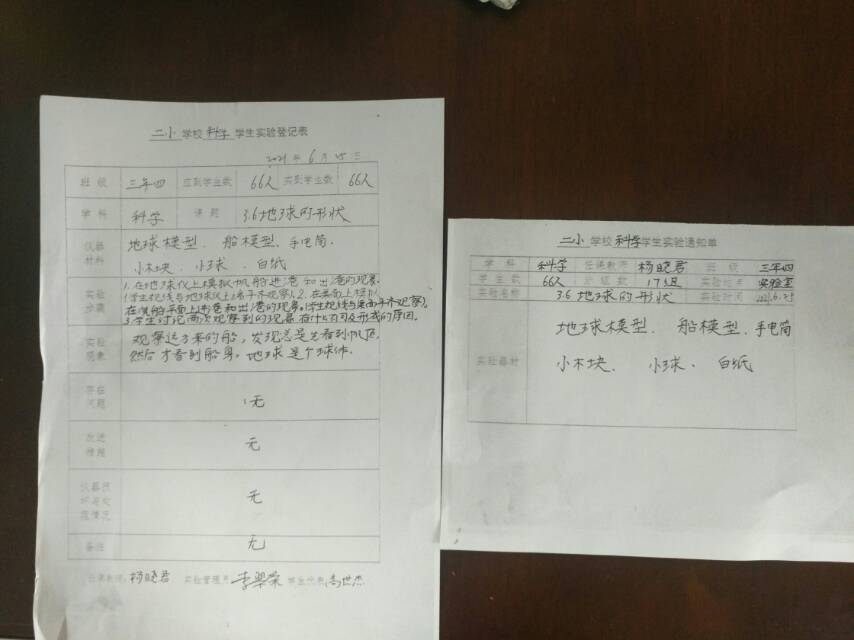 二小 学校 科学 学生实验登记表
2021年 6月 25日
班级 三年四 应到学生数 66人 实到学生数 66人
学科 科学 课题 3.6地球的形状
仪器材料 地球模型、船模型、手电筒
小木块、小球、白纸
实验步骤 1.在地球仪上模拟帆船进港和出港的现象
(学生视线与地球仪上端平齐观察)、2.在桌面上模拟
在海平面上进港和出港的现象。(学生视线与桌面平齐观察)
3.学生讨论两次观察到的现象有什么不同及形成的原因。
实验现象 观察远方来的船,发现总是先看到帆顶
然后才看到船身。地球是个球体。
存在问题 无
改进措施 无
仪器损坏与处理情况 无
备注 无
任课教师:杨晓君 实验管理员 学生代表:高世杰
二小 学校 科学 学生实验通知单
学科 科学 任课教师 杨晓君 班级 三年四
学生数 66人 分组数 17组 实验地点 实验室
实验名称 3.6 地球的形状 实验时间 2021.6.25
实验器材 地球模型、船模型、手电筒
小木块、小球、白纸